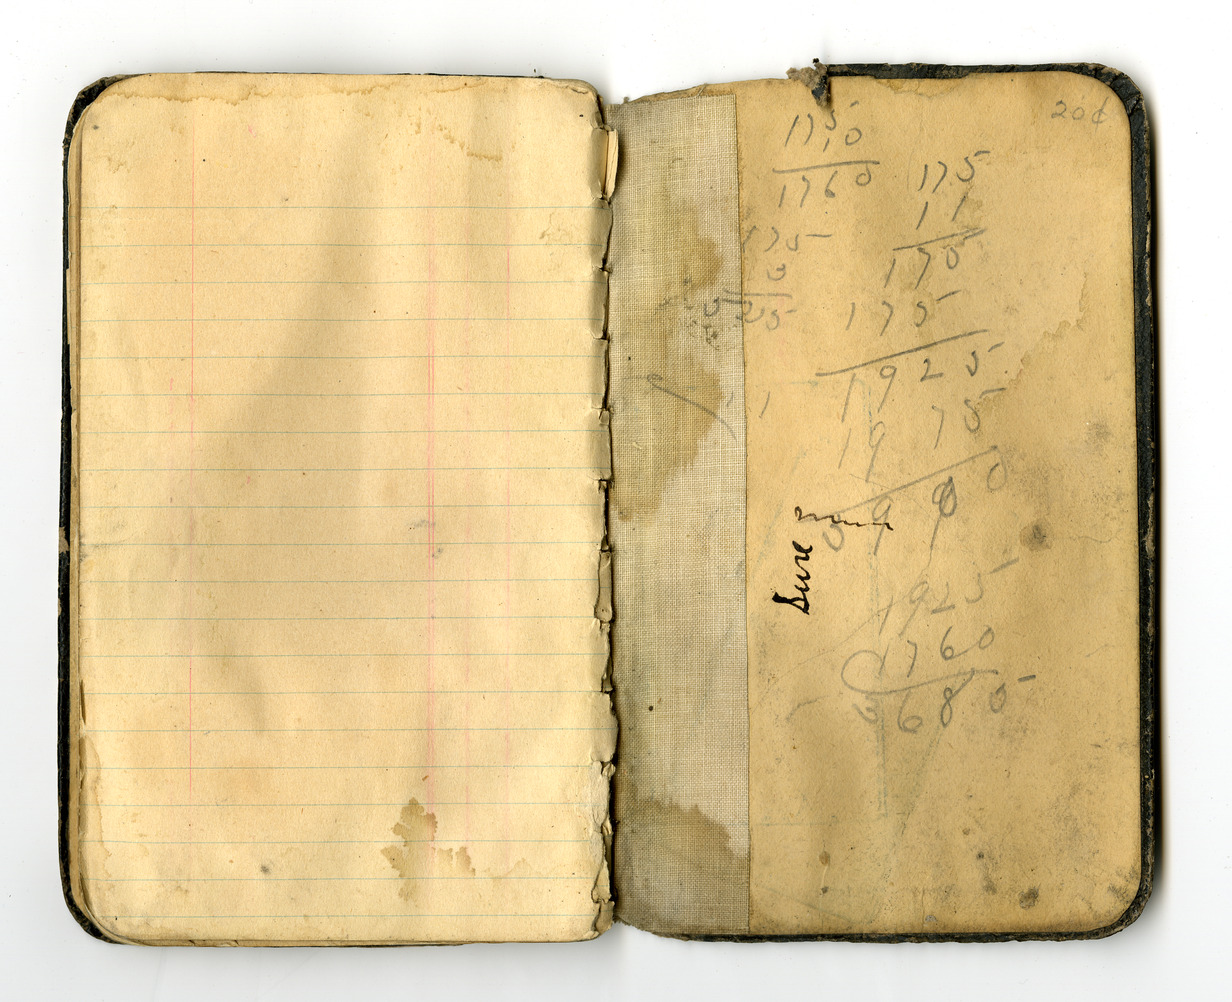 20¢
175
10
1760
175
11
175
3
525
175
175
1925
1
19 75
0
9 0
Sure
1925
1760
685